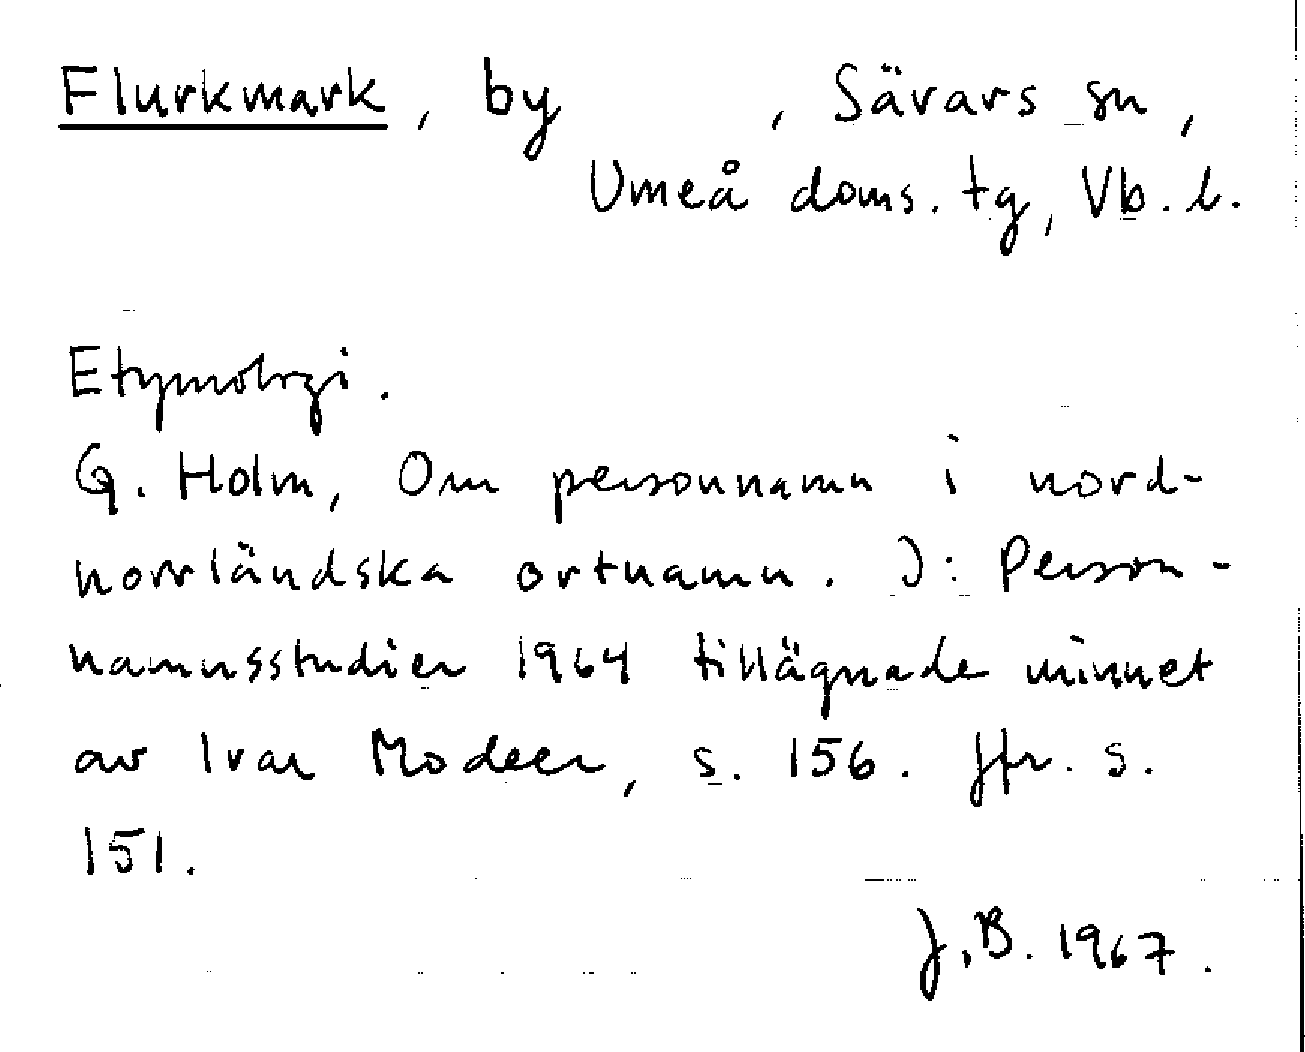 Flurkmark, by , Sävars sn,
Umeå doms. tg, Vb. l.
Etymologi.
G. Holm, Om personnamn i nord-
norrländska ortnamn. I: Person-
namnsstudier 1964 tillägnade minnet
av Ivar Modeer, s. 156. Jfr. s.
151.
J.B. 1967.